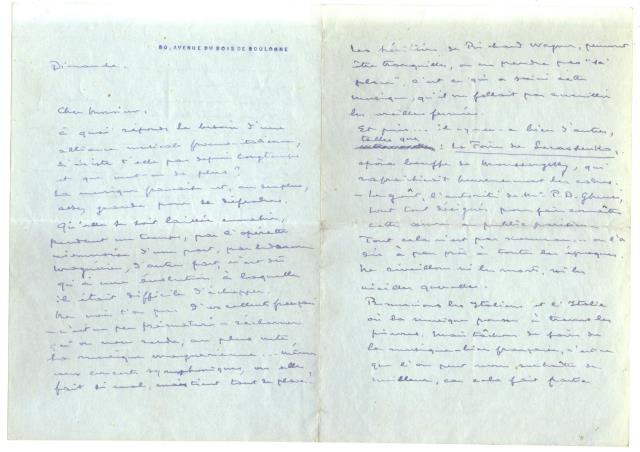 80, AVENUE DU BOIS DE BOULOGNE
Dimanche.
Cher Monsieur,
à quoi répond le besoin d'une
alliance musicale franco-italienne,
n'existe t'elle pas depuis longtemps
et que veut-on de plus?
La musique française est, au surplus,
assez grande pour se défendre.
Qu'elle se soit laissée envahir,
pendant un temps, par l'opérette
viennoise d'une part, par
wagnérien, d'autre part, c'est dû
qu'à une évolution à laquelle
il était difficile d'échapper.
Ne voit-on pas d'excellents français
- c'est un peu prématuré - s'acharner
qu'on nous rende, au plus vite
la musique wagnérienne... même
nos concerts symphoniques, où elle
fait si mal, et tient tant de place!
Les héritiers de Richard Wagner, peuvent
être tranquilles, on ne prendra pas "sa
place". c'est ce qui a suivi cette
musique, qu'il ne fallait pas accueillir
les vieilles
Et puis... il y en a bien d'autres,
telles que
: La Foire de Sorotchintzi,
opéra bouffe de Moussorgsky, qui
rafraîchirait heureusement les cadres.
- Le goût, l'autorité de Mr P. B. Gheusi,
sont tout désignés, pour faire connaître
cette œuvre au public parisien.
Tout cela n'est pas nouveau... on l'a
dit à peu près à toutes les époques.
Ne réveillons ni les morts, ni les
vieilles querelles.
Remercions les Italiens et l'Italie
où la musique pousse à travers les
pierres. Mais tâchons de faire de
la musique bien française, c'est ce
que l'on peut nous souhaiter de
meilleur, car cela fait partie